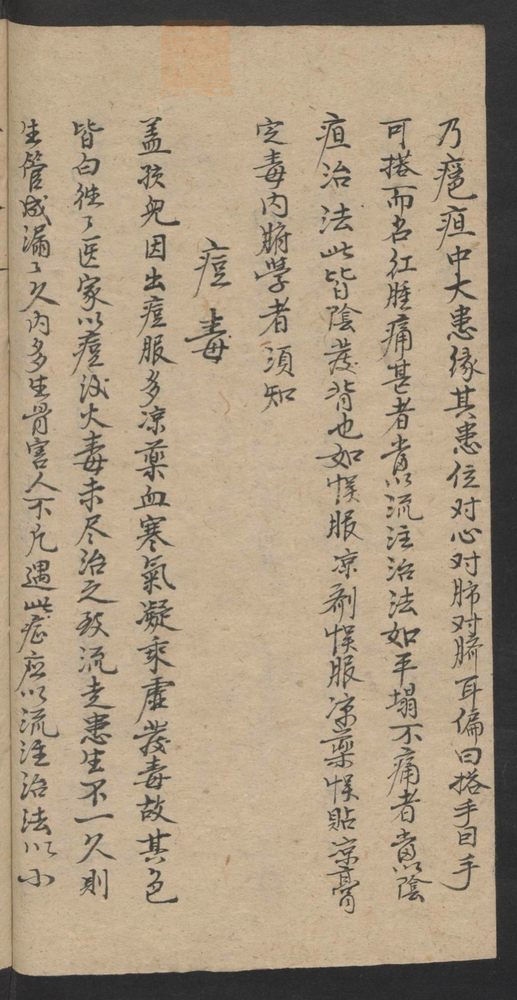 乃疽中大患缘其患位对心对肺对臍耳偏曰搭手因手
可搭而名红腫痛甚者當以流注治法如平塌不痛者當以陰
疽治法此皆陰發背也如悮服凉剂悮服凉藥悮貼凉膏
定毒内腑學者須知
痘毒
盖孩兒因出痘服多凉藥血寒氣凝乘虚發毒故其色
皆白往々医家以痘後火毒未尽治之致流走患生不一久則
生管成漏々久内多生骨害人不凡遇此症应以流注治法以小